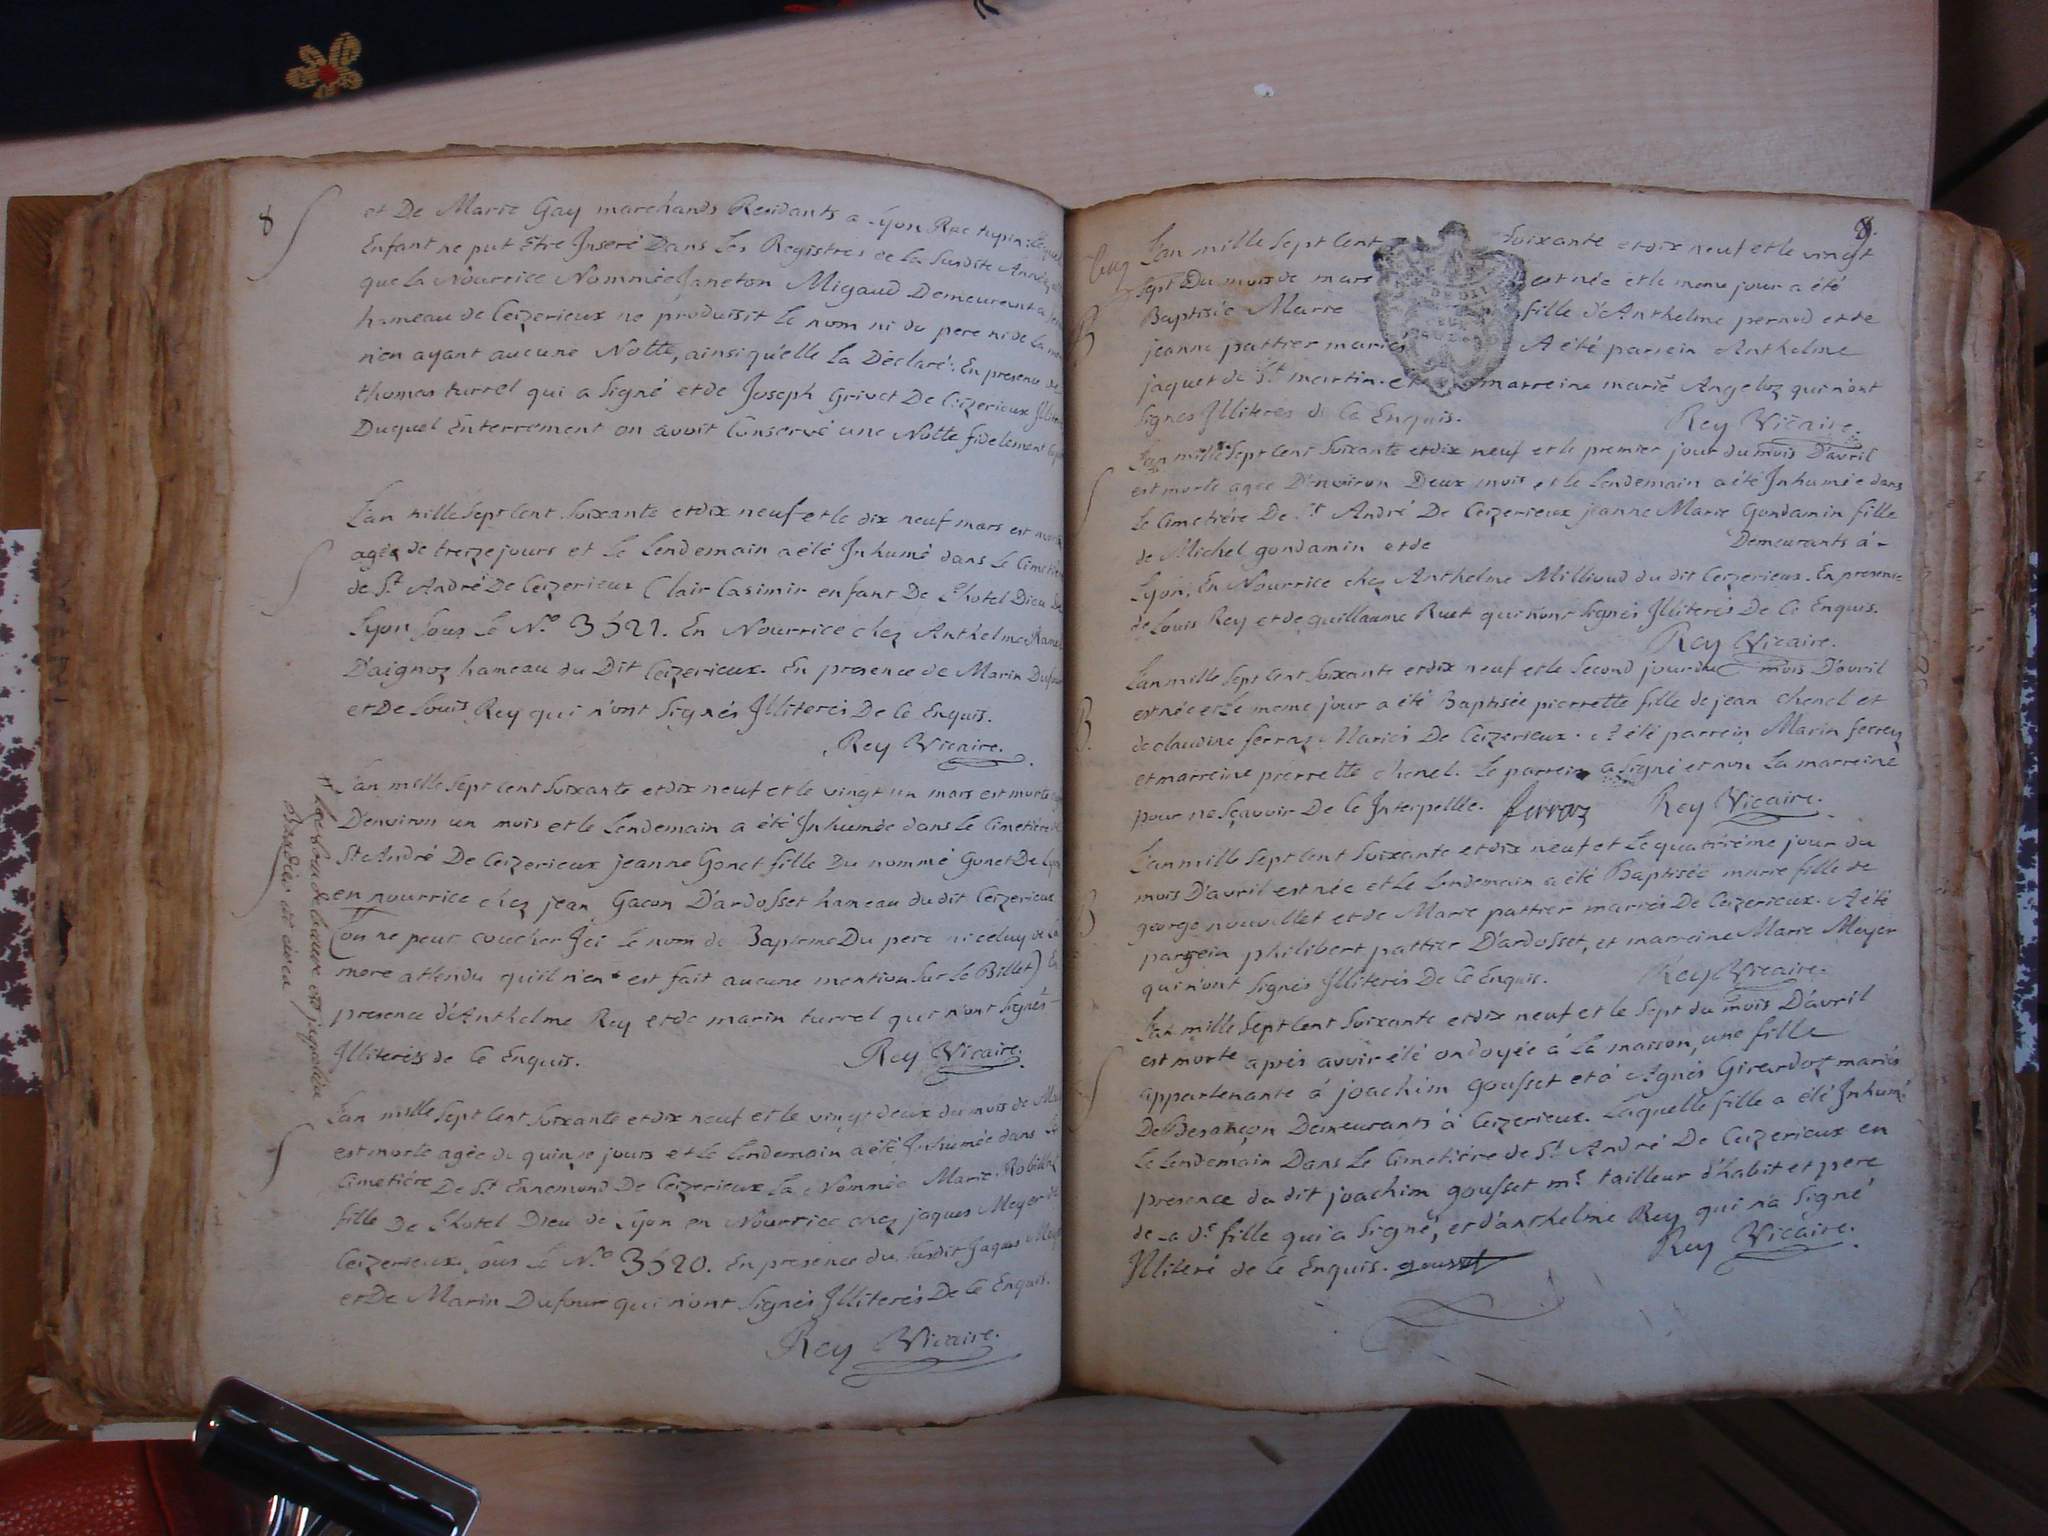 8
et De Marie Gay marchands Residants a Lyon Rue tupin: Lequel
Enfant ne put être Inseré Dans Les Registres de La Susdite Année
que La Nourrice Nommée Janeton Migaud Demeurant a
hameau de Ceizerieux ne produisit Le nom ni du pere ni de La mere
n'en ayant aucune Notte, ainsi qu'elle La Déclaré. En presence de
thomas turrel qui a Signé et de Joseph Grivet De Ceizerieux
Duquel Enterrement on avoit Conservé une Notte fidelement
L'an mille Sept Cent Soixante et dix neuf et le dix neuf mars est mort
agée de treize jours et Le Lendemain a été Inhumé dans Le Cimetiere
de St André De Ceizerieux Clair Casimir enfant De L'hotel Dieu de
Lyon Sous Le N.o 3521. En Nourrice chez Anthelme
D'aignoz hameau du Dit Ceizerieux. En presence de Marin Dufour
et De Louis Rey qui n'ont Signés Illiterés De Ce Enquis.
Rey Vicaire.
L'an mille Sept Cent Soixante et dix neuf et le vingt un mars est morte
D'environ un mois et le Lendemain a été Inhumée dans Le Cimetière
St André De Ceizerieux jeanne Gonet fille Du nommé Gonet De Lyon
en nourrice chez jean Gacon D'ardosset hameau du dit Ceizerieux
(on ne peut coucher Ici Le nom de Bapteme Du pere ni celuy de La
mere attendu qu'il n'en est fait aucune mention Sur Le Billet) En
presence d'Anthelme Rey et de marin turrel qui n'ont Signés
Illiterés de Ce Enquis. Rey Vicaire.
L'an mille Sept Cent Soixante et dix neuf et le vingt deux du mois de Mars
est morte agée de quinze jours et Le Lendemain a été Inhumée dans Le
Cimetière De St Ennemond De Ceizerieux La Nommée Marie
fille De L'hotel Dieu de Lyon en Nourrice chez jaques Meyer de
Ceizerieux, Sous Le N.o 3520. En presence du Susdit Jaques Meyer
et De Marin Dufour qui n'ont Signés Illiterés De Ce Enquis.
Rey Vicaire.
8.
L'an mille Sept Cent Soixante et dix neuf et le vingt
Sept Du mois de mars est née et le meme jour a été
Baptisée Marie fille d'Anthelme pernod et de
jeanne pattier mariés A été parrein Anthelme
jaquet de St martin. et marreine marie Angeloz qui n'ont
Signés Illiterés de Ce Enquis. Rey Vicaire.
B
L'an mille Sept Cent Soixante et dix neuf et le premier jour du mois D'avril
est morte agée D'environ Deux mois et le Lendemain a été Inhumée dans
Le Cimetière De St André De Ceizerieux jeanne Marie Gondamin fille
de Michel gondamin et de Demeurants à
Lyon; En Nourrice chez Anthelme Millioud du dit Ceizerieux. En presence
de Louis Rey et de guillaume Ruet qui n'ont Signés Illiterés De Ce Enquis.
Rey Vicaire.
L'an mille Sept Cent Soixante et dix neuf et le Second jour du mois D'avril
est née et Le meme jour a été Baptisée pierrette fille de jean Chenel et
B.
de claudine ferraz Mariés De Ceizerieux. A été parrein Marin ferraz
et marreine pierrette chenel. Le parrein a Signé et non La marreine
pour ne Sçavoir De Ce Interpellée. ferraz Rey Vicaire.
L'an mille Sept Cent Soixante et dix neuf et Le quatrieme jour du
mois D'avril est née et Le Lendemain a été Baptisée marie fille de
B
george nouvillet et de Marie pattier mariés De Ceizerieux. A été
parrein philibert pattier D'ardosset, et marreine Marie Meyer
qui n'ont Signés Illiterés De Ce Enquis. Rey Vicaire.
L'an mille Sept Cent Soixante et dix neuf et le Sept du mois D'avril
est morte après avoir été ondoyée à La maison, une fille
appartenante à joachim gousset et à Agnés Girardoz mariés
De Besançon Demeurants à Ceizerieux. Laquelle fille a été Inhumé
Le Lendemain Dans Le Cimetière de St André De Ceizerieux en
presence du dit joachim gousset me tailleur d'habit et pere
de La de fille qui a Signé, et d'anthelme Rey qui n'a Signé
Illiteré de Ce Enquis. gousset Rey Vicaire.